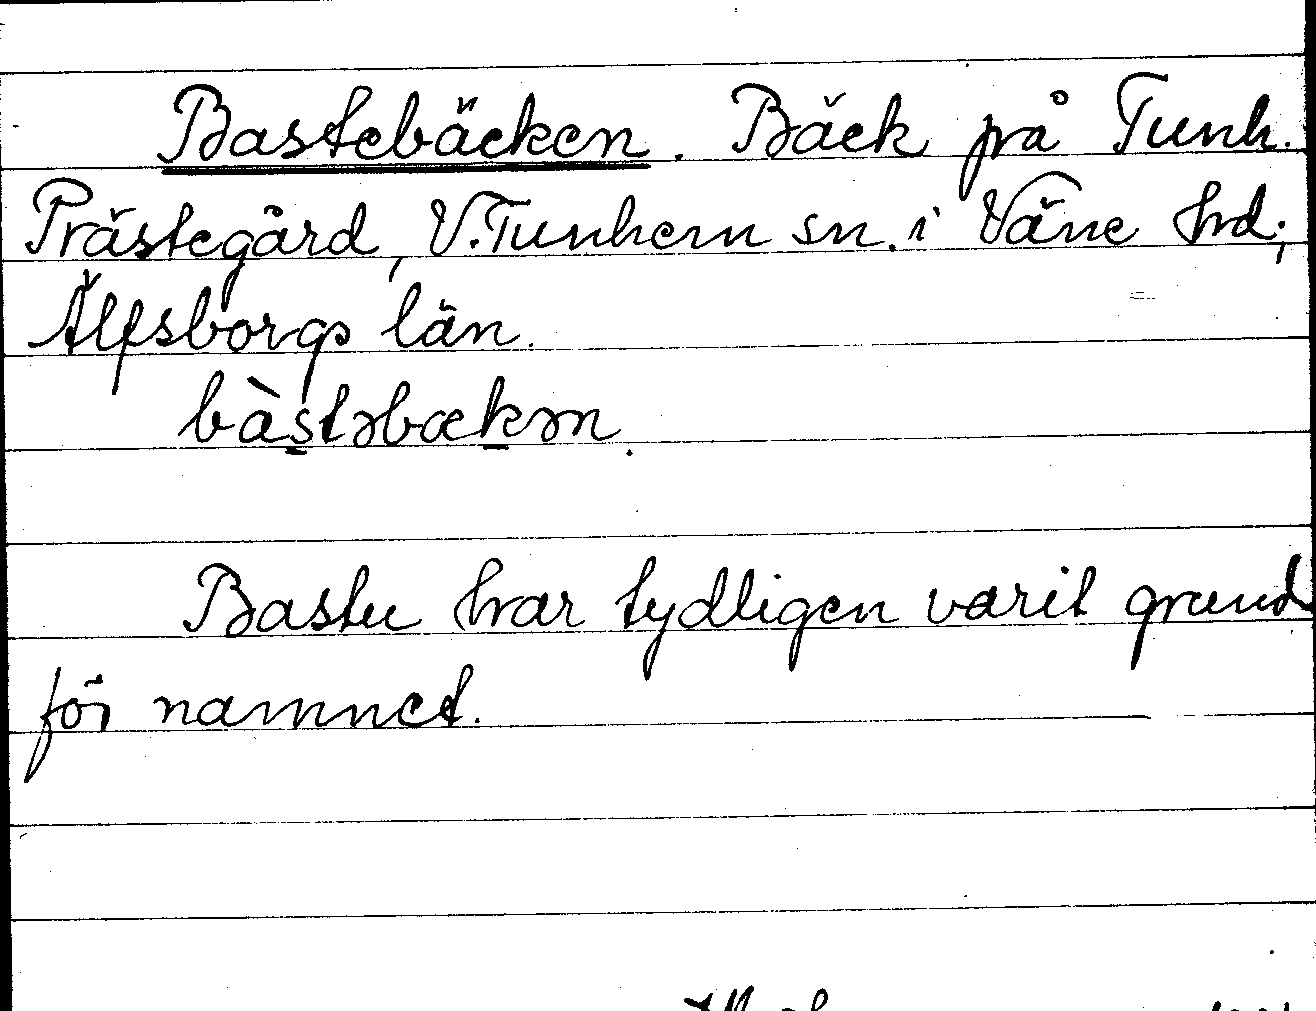 Bastebäcken. Bäck på Tunh.
Prästegård, V. Tunhem sn. i Väne hrd;
Älfsborgs län.
bàstəbækən.
Bastu har tydligen varit grund
för namnet.